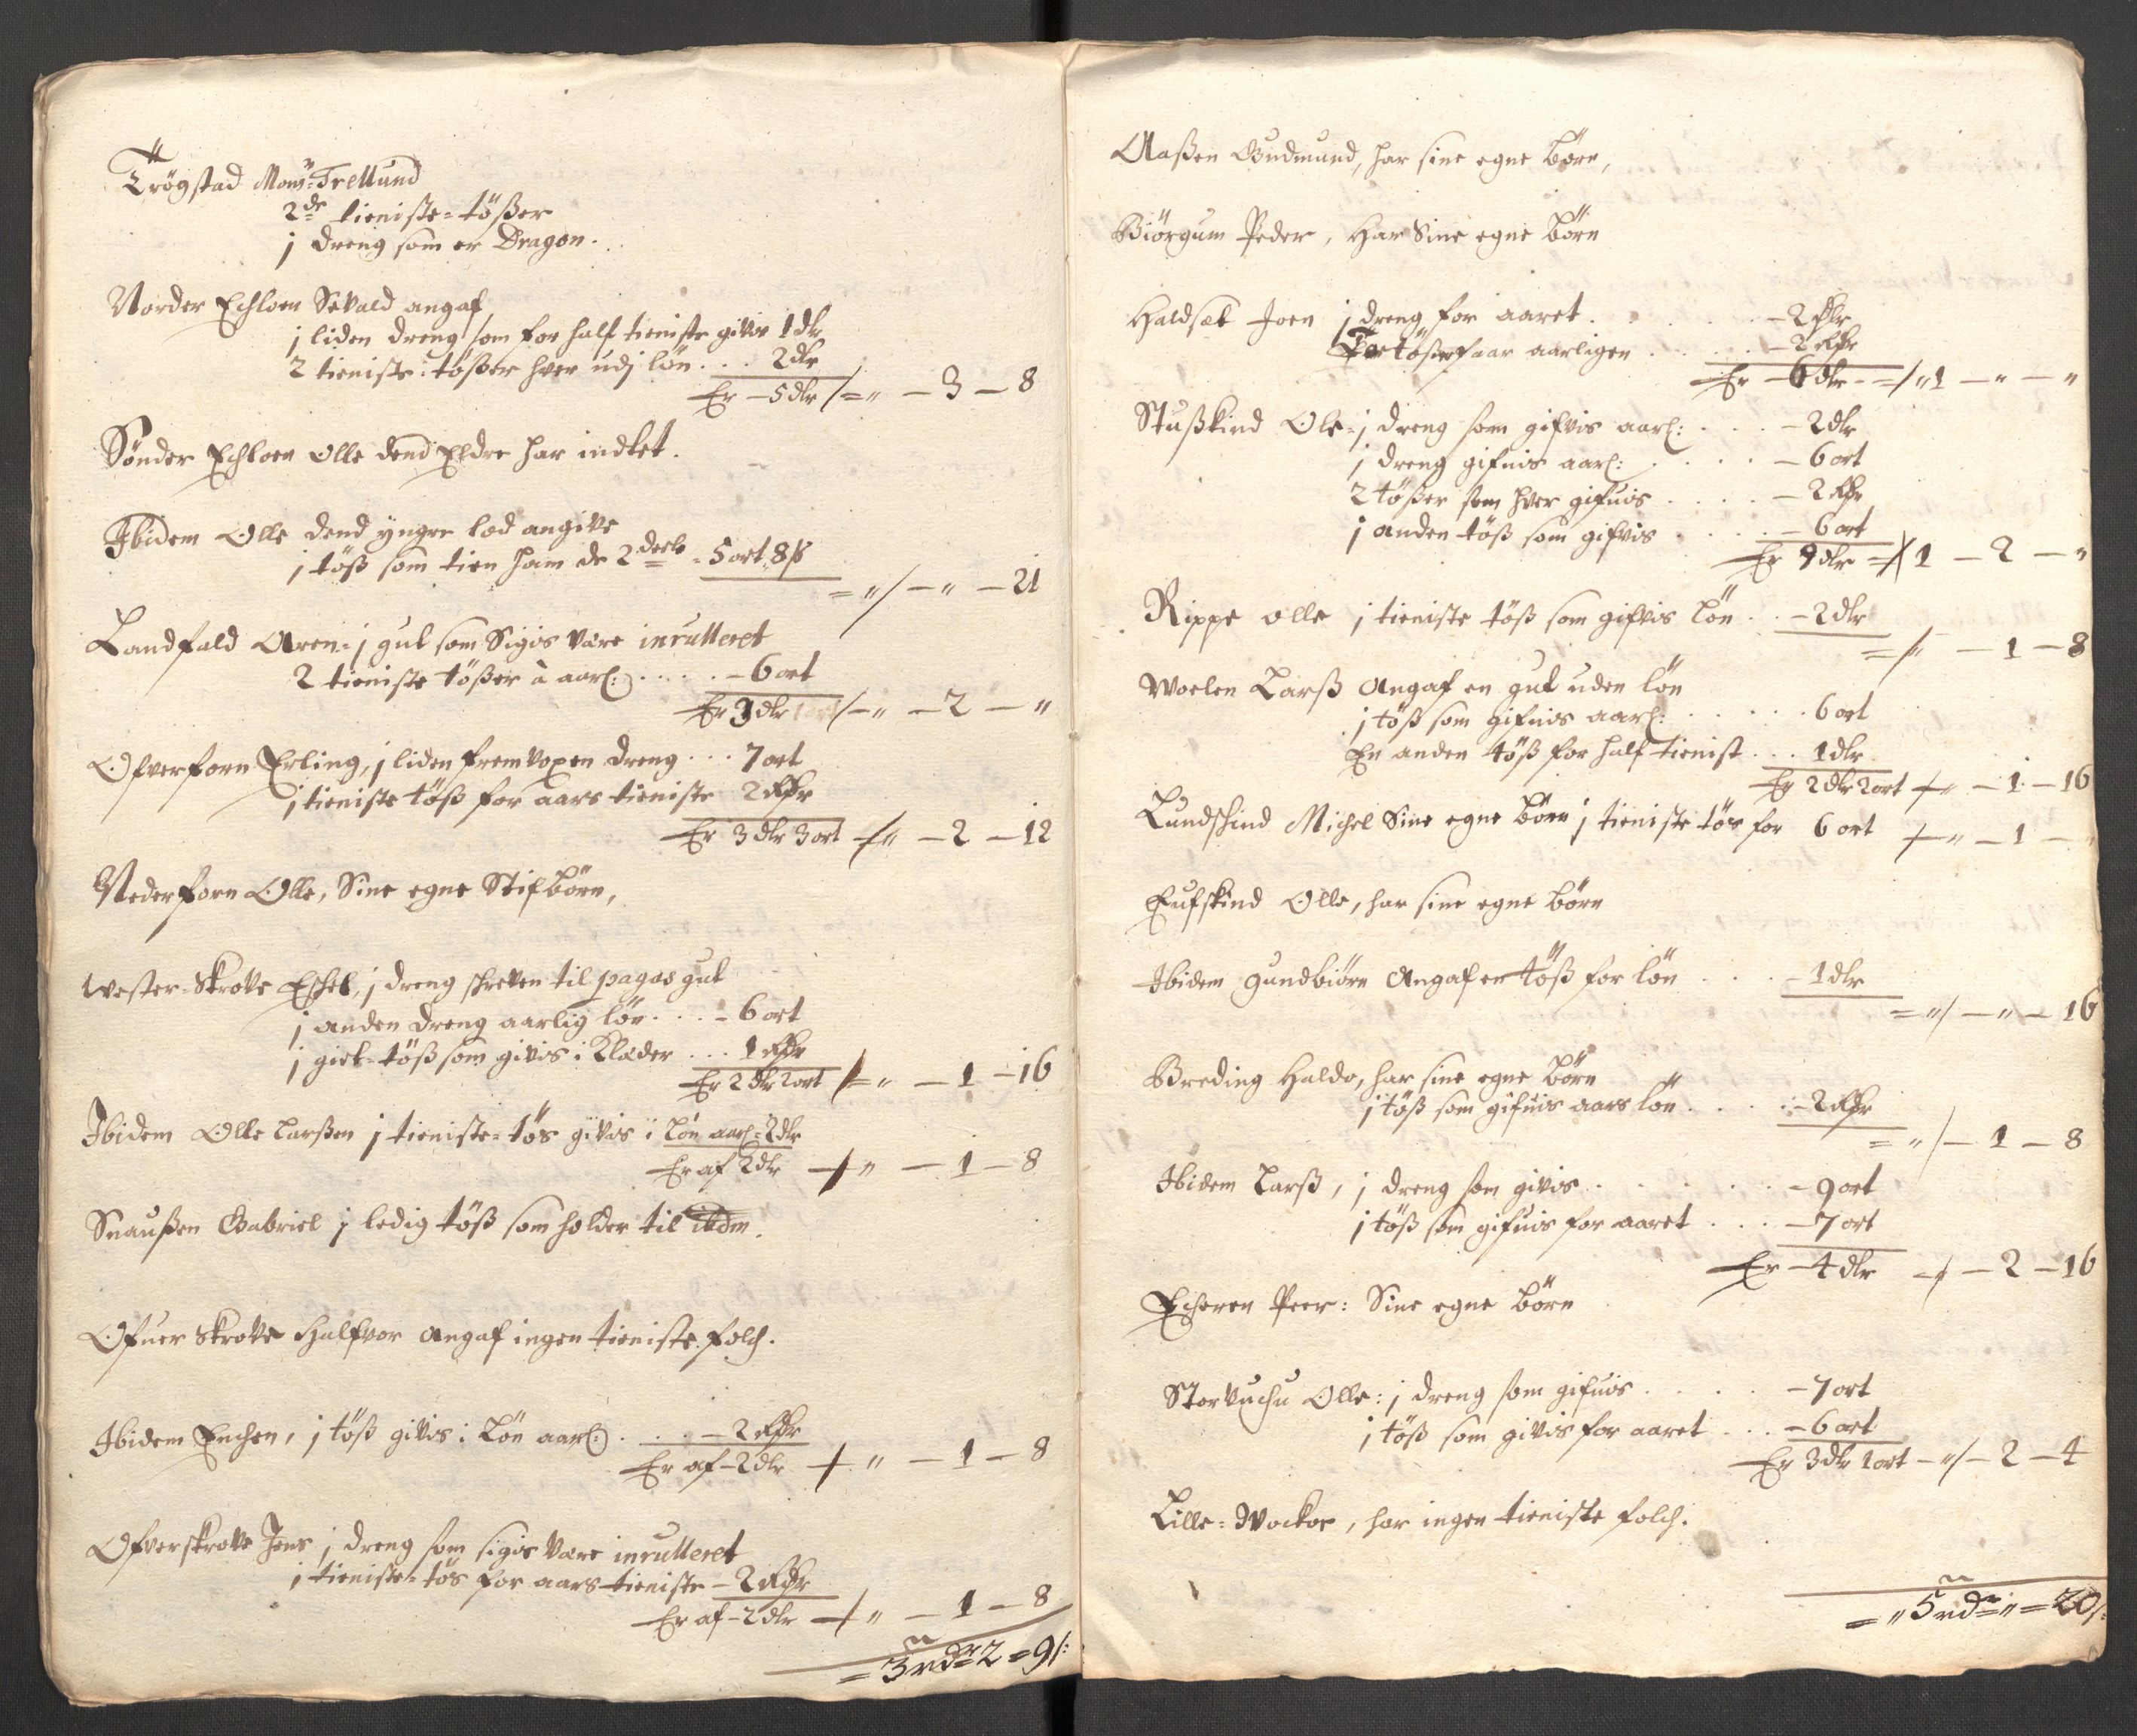 Trögstad Mons: Trellund
2de tieniste-tößer
j dreng som er Dragon.
Norder Echloen Sivald angaf
j liden dreng som for half tieniste givis 1 dlr
2 tieniste-tößer hver udj lön . . . 2 dlr
Er – 5 dlr /= „ – 3 – 8
Sönder Echloen Olle dend Eldre har indtet.
Ibidem Olle dend yngre lod angive
j töß som tien ham de 2 deele - 5 ort 8 ß
= „ / – „ – 21
Landfald Aren: j gut som Sigis være inrulleret
2 tieniste tößer à aarl: . . . . – 6 ort
Er 3 dlr / – „ – 2 – „
Ofverforn Erling, j liden fremvoxen dreng . . . 7 ort
j tieniste töß for aars tieniste 2 Rdr
Er 3 dlr 3 ort / „ – 2 – 12
Nederforn Olle, Sine egne Stifbörn,
Wester-Skrove Eschel, j dreng schreven til pagas gut
j anden dreng aarlig lön . . . – 6 ort
j giet-töß som givis i Klæder . . . 1 Rdr
Er 2 dlr 2 ort /= „ – 1 – 16
Ibidem Olle Larßen j tieniste-tös givis i Lön aarl: 2 dlr
Er af 2 dlr / „ – 1 – 8
Snaußen Gabriel j ledig töß som holder til ibdm.
Ofuer Skrove Halfvor angaf ingen tieniste folch.
Ibidem Enchen, j töß givis i Lön aarl: . . . – 2 Rdr
Er af – 2 dlr / „ – 1 – 8
Ofverskrove Jens j dreng som sigis være inrulleret
j tieniste-tös for aars-tieniste – 2 Rdr
Er af – 2 dlr / „ – 1 – 8
= 3 rdr 2 = 9 ß:
Aaßen Gudmund, har sine egne börn,
Biörgum Peder, Har Sine egne börn
Haldset Joen j dreng for aaret . . . . – 2 dlr
Toe tößer faar aarligen . . . . – 2 Rdr
Er – 6 dlr - =/ „ 1 – „ – „
Stußkind Ole - j dreng som gifvis aarl: . . . – 2 dlr
j dreng gifuis aarl: . . . . – 6 ort
2 tößer som hver gifuis . . . . – 2 Rdr
j anden töß som gifvis . . . . – 6 ort
Er 9 dlr =/ 1 – 2 – „
Rippe olle j tieniste töß som gifvis lön . . – 2 dlr
= / „ – 1 – 8
Woelen Larß Angaf en gut uden lön
j töß som gifuis aarl: . . . . . 6 ort
En anden töß for half tienist . . . 1 dlr
Er 2 dlr 2 ort / „ – 1 – 16
Lundskind Michel Sine egne börn j tieniste tös for 6 ort / „ – 1 – „
Eufskind Olle, har sine egne börn
Ibidem gundbiörn Angaf en töß for lön . . . – 1 dlr
= „ / – „ – 16
Breding Haldo, har sine egne börn
j töß som gifuis aars lön . . . . – 2 Rdr
= „ / – 1 – 8
Ibidem Larß, j dreng som givis . . . . . – 9 ort
j töß som gifuis for aaret . . . – 7 ort
Er – 4 dlr / – 2 – 16
Echeren Peer: Sine egne börn
Storvuchu Olle: j dreng som gifuis . . . . – 7 ort
j töß som givis for aaret . . . – 6 ort
Er 3 dlr 1 ort – „ / – 2 – 4
Lille-Wockor, har ingen tieniste folch.
= „ 5 rdr = „ = 20 ß: